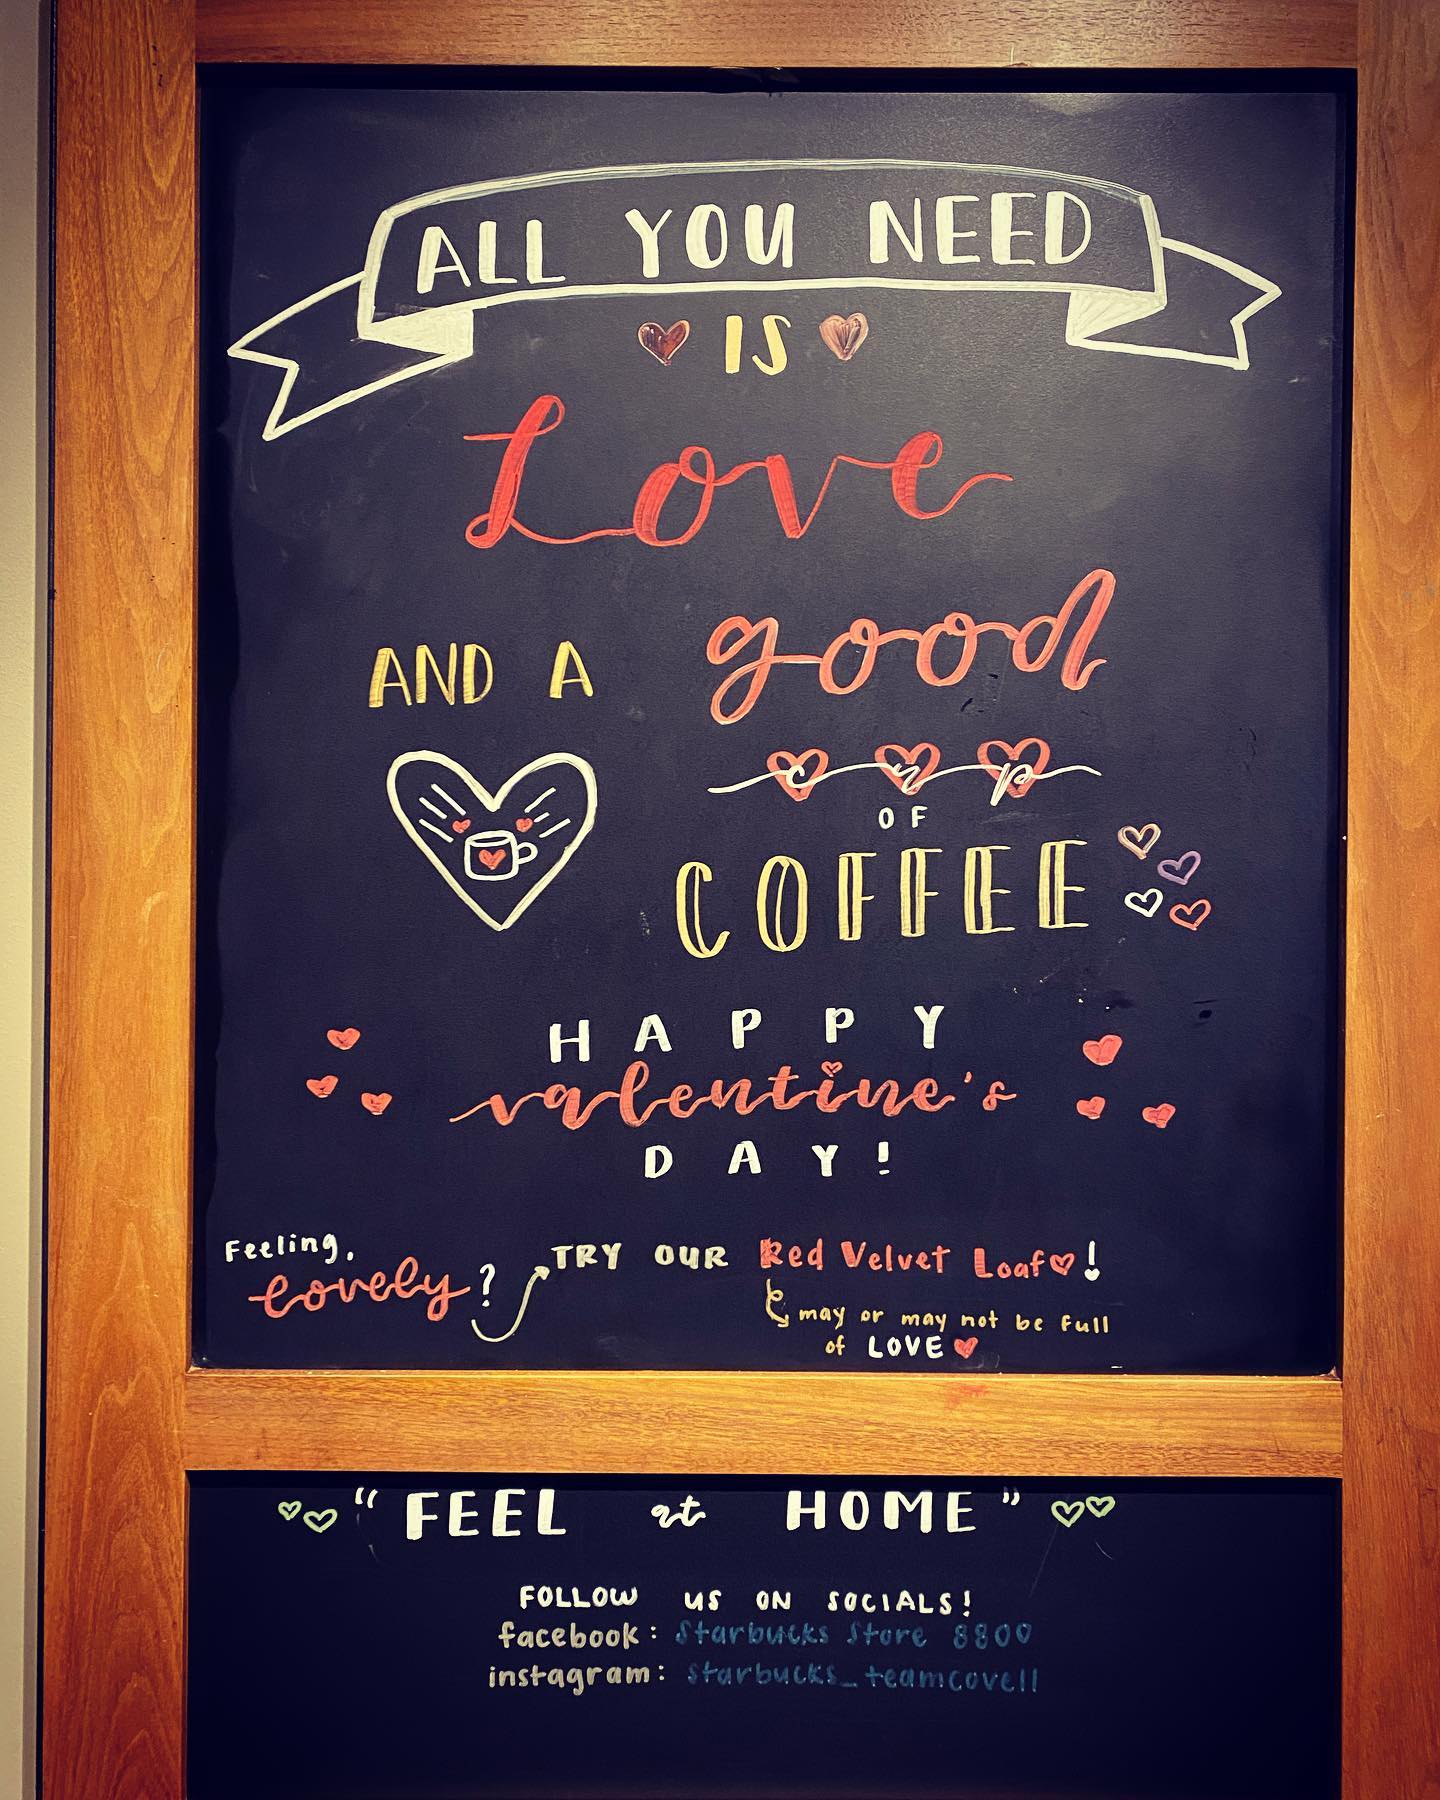 ALL YOU NEED
IS
Love
AND A good
cup
OF
COFFEE
HAPPY
valentine's
DAY!
Feeling,
lovely?
TRY OUR Red Velvet Loaf!
may or may not be full
of LOVE
"FEEL at HOME"
FOLLOW US ON SOCIALS!
facebook: Starbucks Store 8800
instagram: starbucks_teamcovell